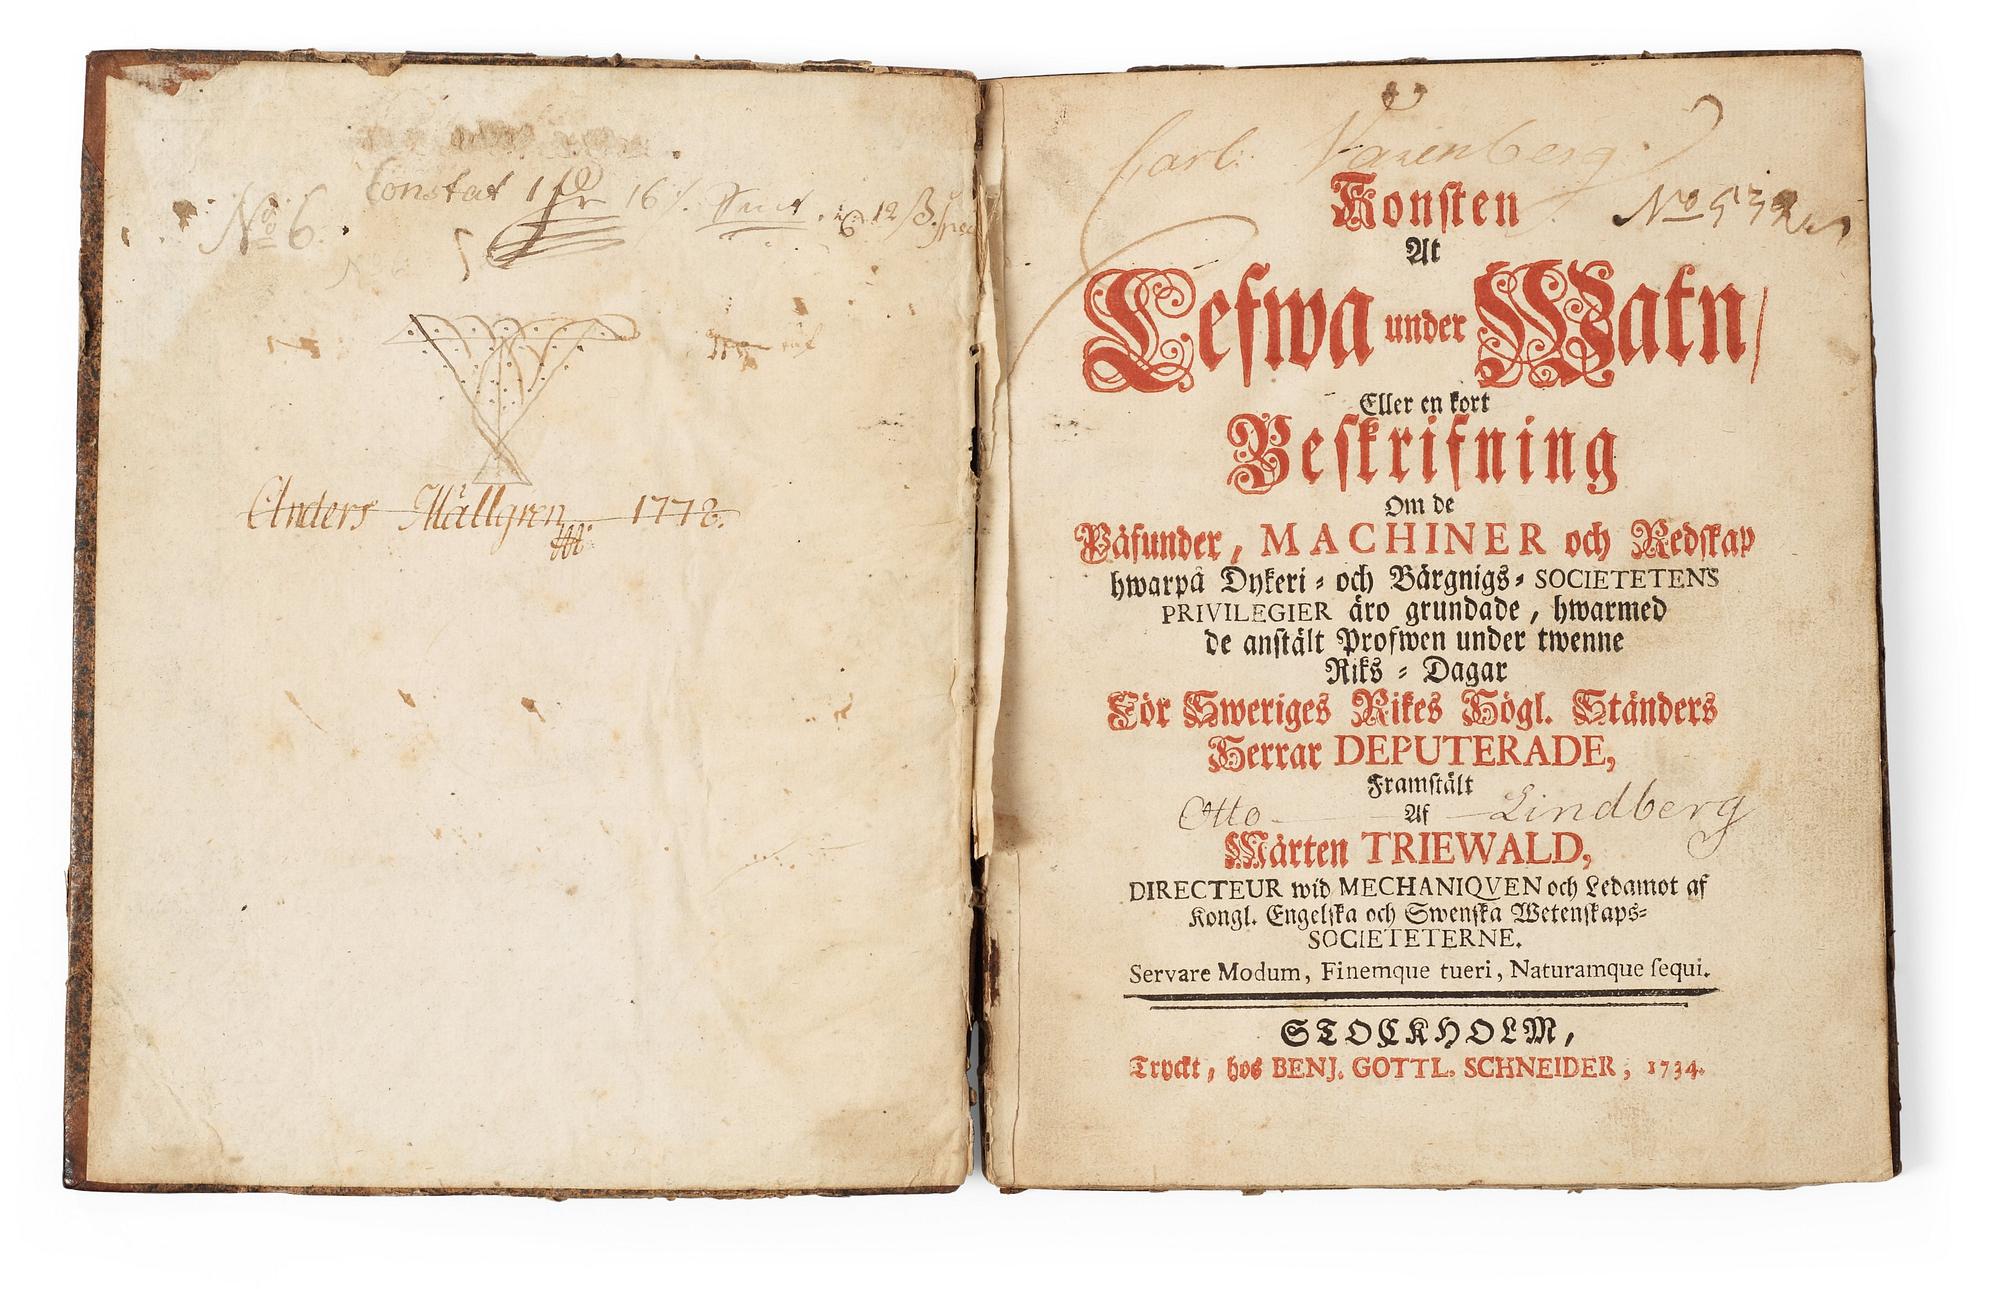 No 6.
Constat 1
Anders Mällgren 1778.
Carl
No 532
Konsten
At
Lefwa under Watn/
Eller en kort
Beskrifning
Om de
Påfunder, MACHINER och Redskap
hwarpå Dykeri- och Bärgnigs- SOCIETETENS
PRIVILEGIER äro grundade, hwarmed
de anstält Profwen under twenne
Riks-Dagar
För Sweriges Rikes Högl. Ständers
Herrar DEPUTERADE,
Framstält
Af
Otto Lindberg
Mårten TRIEWALD,
DIRECTEUR wid MECHANIQVEN och Ledamot af
Kongl. Engelska och Swenska Wetenskaps-
SOCIETETERNE.
Servare Modum, Finemque tueri, Naturamque sequi.
STOCKHOLM,
Tryckt, hos BENJ. GOTTL. SCHNEIDER, 1734.